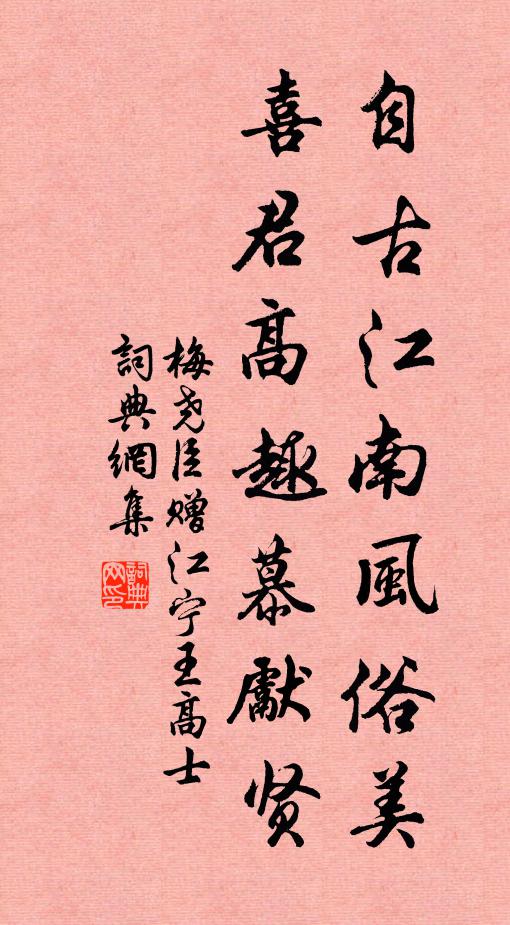 自古江南風俗美
喜君高趣慕獻贤
梅尧臣赠江宁王高士
詞典網集
詞典网印